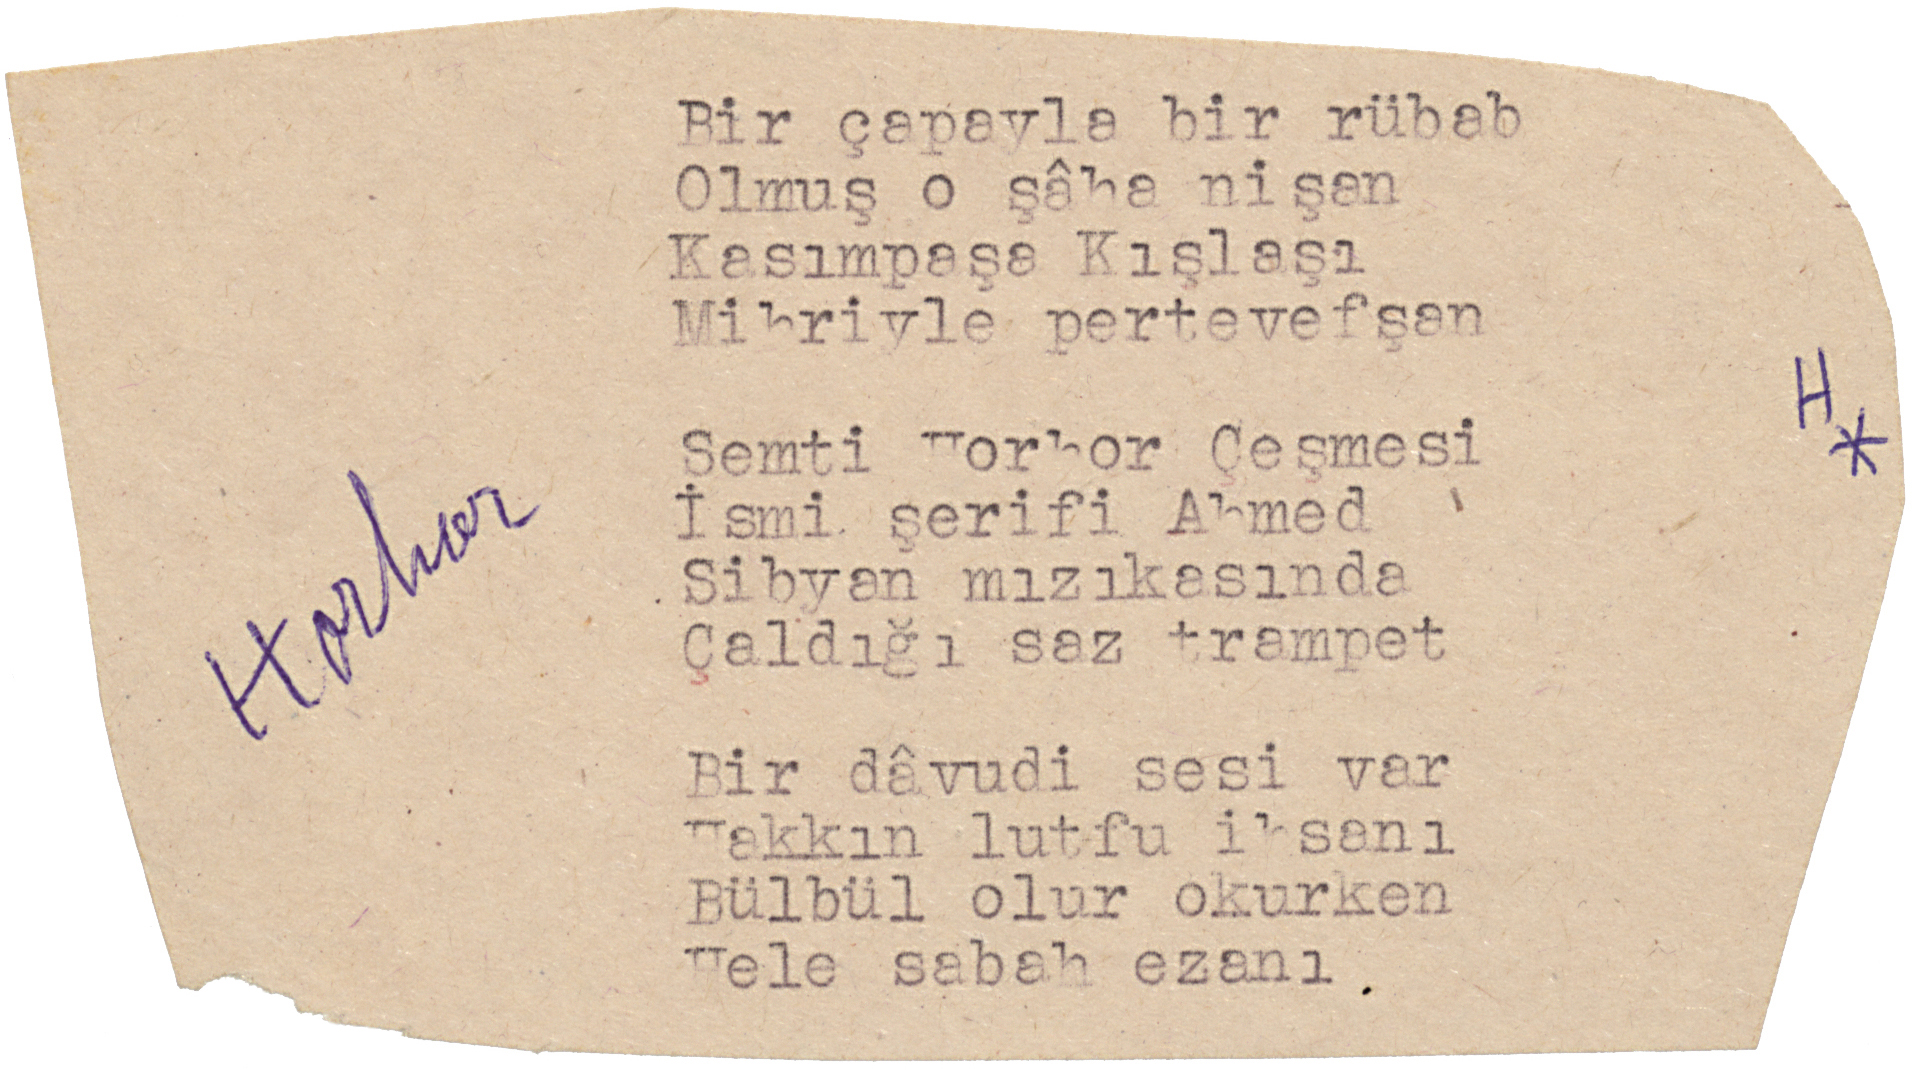 Bir çapayla bir rübab
Olmuş o şâha nişan
Kasımpaşa Kışlaşı
Mihriyle pertevefşan
H
*
Semti Horhor Çeşmesi
İsmi şerifi Ahmed
Sibyan mızıkasında
Çaldığı saz trampet
Horhor
Bir dâvudi sesi var
Hakkın lutfu ihsanı
Bülbül olur okurken
Hele sabah ezanı.